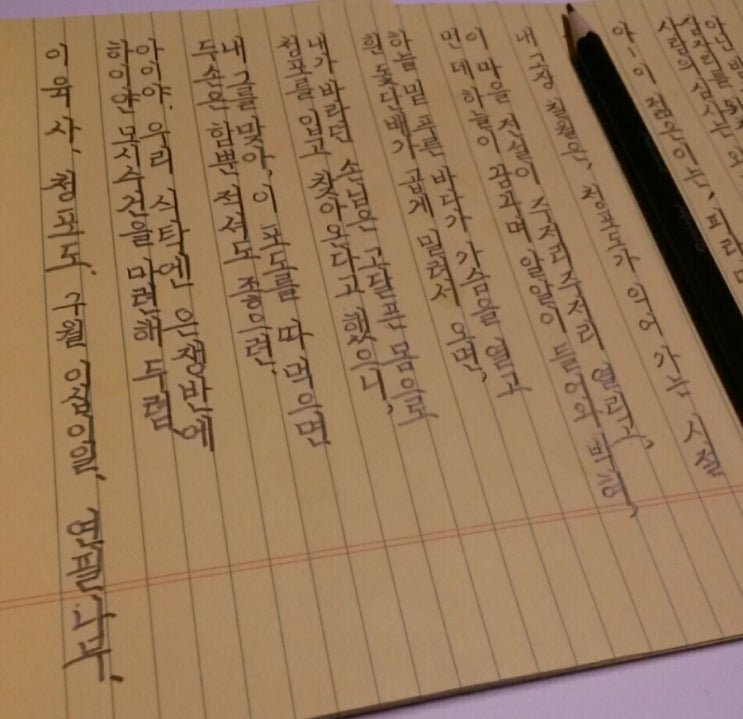 아닌
사람의 심사는
아ㅡ이 젊은이는,
내 고장 칠월은, 청포도가 익어 가는 시절
이 마을 전설이 주저리주저리 열리고,
먼 데 하늘이 꿈꾸며 알알이 들어와 박혀,
하늘 밑 푸른 바다가 가슴을 열고
흰 돛단배가 곱게 밀려서 오면,
내가 바라던 손님은 고달픈 몸으로
청포를 입고 찾아온다고 했으니,
내 그를 맞아, 이 포도를 따 먹으면
두 손은 함뿐 적셔도 좋으련.
아이야, 우리 식탁엔 은쟁반에
하이얀 모시수건을 마련해 두렴
이육사, 청포도. 구월 이십이일, 연필나무.